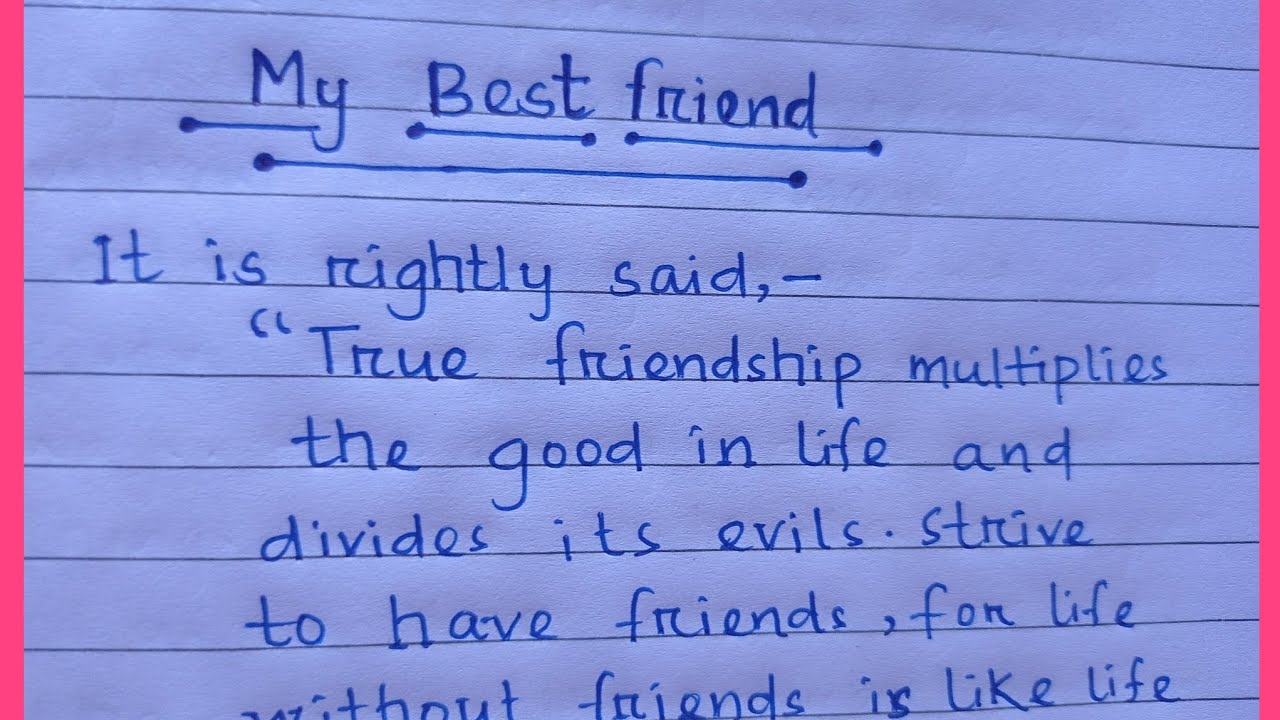 My Best friend
It is rightly said,-
"True friendship multiplies
the good in life and
divides its evils. Strive
to have friends, for life
without friends is like life